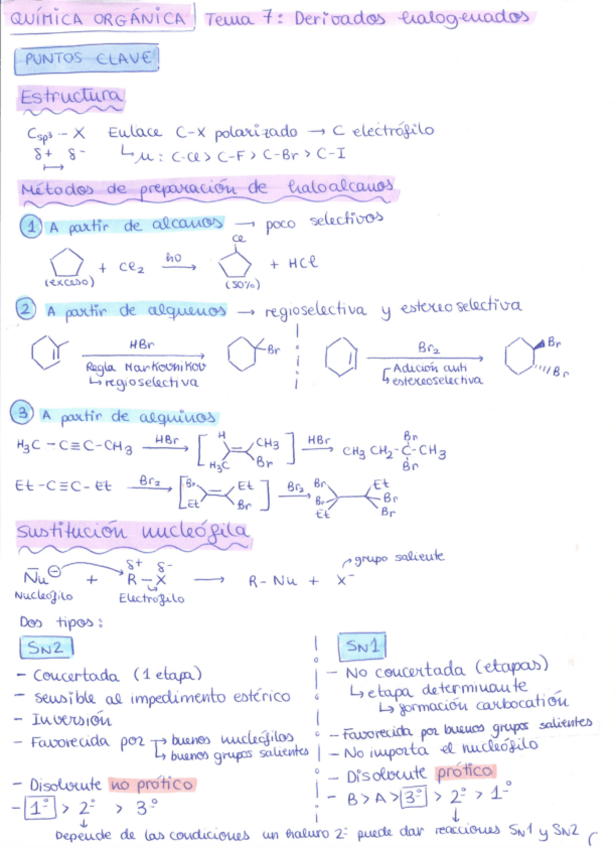 QUÍMICA ORGÁNICA Tema 7: Derivados halogenados
PUNTOS CLAVE
Estructura
Csp3 - X Enlace C-X polarizado → C electrófilo
δ+ δ- ↳ μ: C-Cl > C-F > C-Br > C-I
Métodos de preparación de haloalcanos
1 A partir de alcanos → poco selectivos
Cl
+ Cl2 hν → + HCl
(exceso) (50%)
2 A partir de alquenos → regioselectiva y estereoselectiva
HBr Br Br2 Br
Regla Markovnikov Adición anti Br
↳ regioselectiva ↳ estereoselectiva
3 A partir de alquinos
H3C - C≡C - CH3 HBr → [ H CH3 H3C Br ] HBr → CH3 CH2 - C - CH3 Br Br
Et - C≡C - Et Br2 → [ Br Et Et Br ] Br2 → Br Br Et Et Br Br
Sustitución nucleófila
δ+ δ- grupo saliente
Nu⊖ + R - X → R - Nu + X-
Nucleófilo Electrófilo
Dos tipos:
SN2
- Concertada (1 etapa)
- Sensible al impedimento estérico
- Inversión
- Favorecida por → buenos nucleófilos
↳ buenos grupos salientes
- Disolvente no prótico
- 1º > 2º > 3º
SN1
- No concertada (etapas)
↳ etapa determinante
↳ formación carbocatión
- Favorecida por buenos grupos salientes
- No importa el nucleófilo
- Disolvente prótico
- B > A > 3º > 2º > 1º
Depende de las condiciones un haluro 2º puede dar reacciones SN1 y SN2